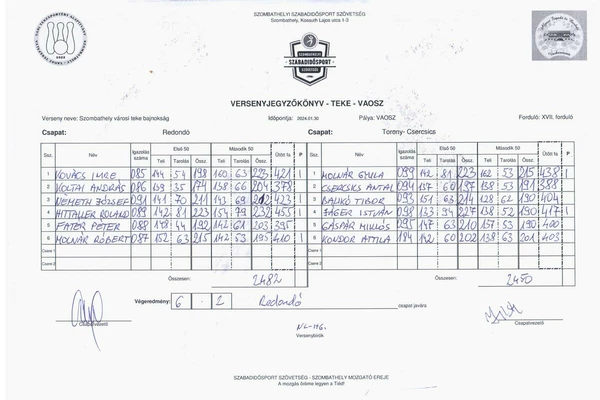 SZOMBATHELYI SZABADIDŐSPORT SZÖVETSÉG
Szombathely, Kossuth Lajos utca 1-3
SZABADIDŐSPORT
SZÖVETSÉG
VERSENYJEGYZŐKÖNYV - TEKE - VAOSZ
Verseny neve: Szombathely városi teke bajnokság Időpontja: 2024.01.30 Pálya: VAOSZ Forduló: XVII. forduló
Csapat: Redondó Csapat: Torony- Csercsics
Ssz. Név Igazolás száma Első 50 Második 50 Ütött fa P Ssz. Név Igazolás száma Első 50 Második 50 Ütött fa P
Teli Tarolás Össz. Teli Tarolás Össz. Teli Tarolás Össz. Teli Tarolás Össz.
1 KOVÁCS IMRE 085 144 54 198 160 63 223 421 1 1 MOLNÁR GYULA 099 142 81 223 162 53 215 438 1
2 VOLTAI ANDRÁS 086 139 35 174 138 66 204 378 2 CSERCSICS ANTAL 094 137 60 197 138 53 191 388
3 NÉMETH JÓZSEF 091 141 70 211 143 69 212 423 1 3 BALIKÓ TIBOR 093 151 63 214 128 62 190 404
4 MITTALLER ROLAND 089 142 81 223 154 79 232 455 1 4 JÄGER ISTVÁN 098 133 94 227 138 52 190 417 1
5 FATÉR PÉTER 088 148 44 192 142 61 203 395 5 GÁSPÁR MIKLÓS 095 147 63 210 137 53 190 400
6 MOLNÁR RÓBERT 087 152 63 215 142 53 195 410 1 6 KONDOR ATTILA 184 142 60 202 138 63 201 403
Csere 1 Csere 1
Csere 2 Csere 2
Összesen: 2482 Összesen: 2450
Végeredmény: 6 - 2 Redondó csapat javára
Csapatvezető Versenybírók Csapatvezető
SZABADIDŐSPORT SZÖVETSÉG - SZOMBATHELY MOZGATÓ EREJE
A mozgás öröme legyen a Tiéd!